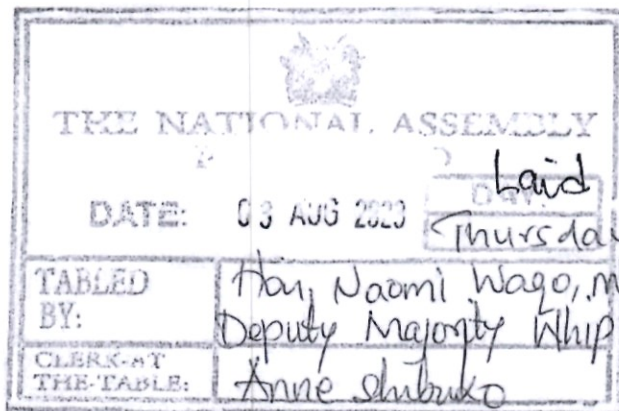 THE NATIONAL ASSEMBLY
Laid
DATE: 03 AUG 2023 DAY:
Thursda
TABLED BY: Hon, Naomi Waqo, M
Deputy Majority Whip
CLERK-AT
THE-TABLE: Anne Shibuko